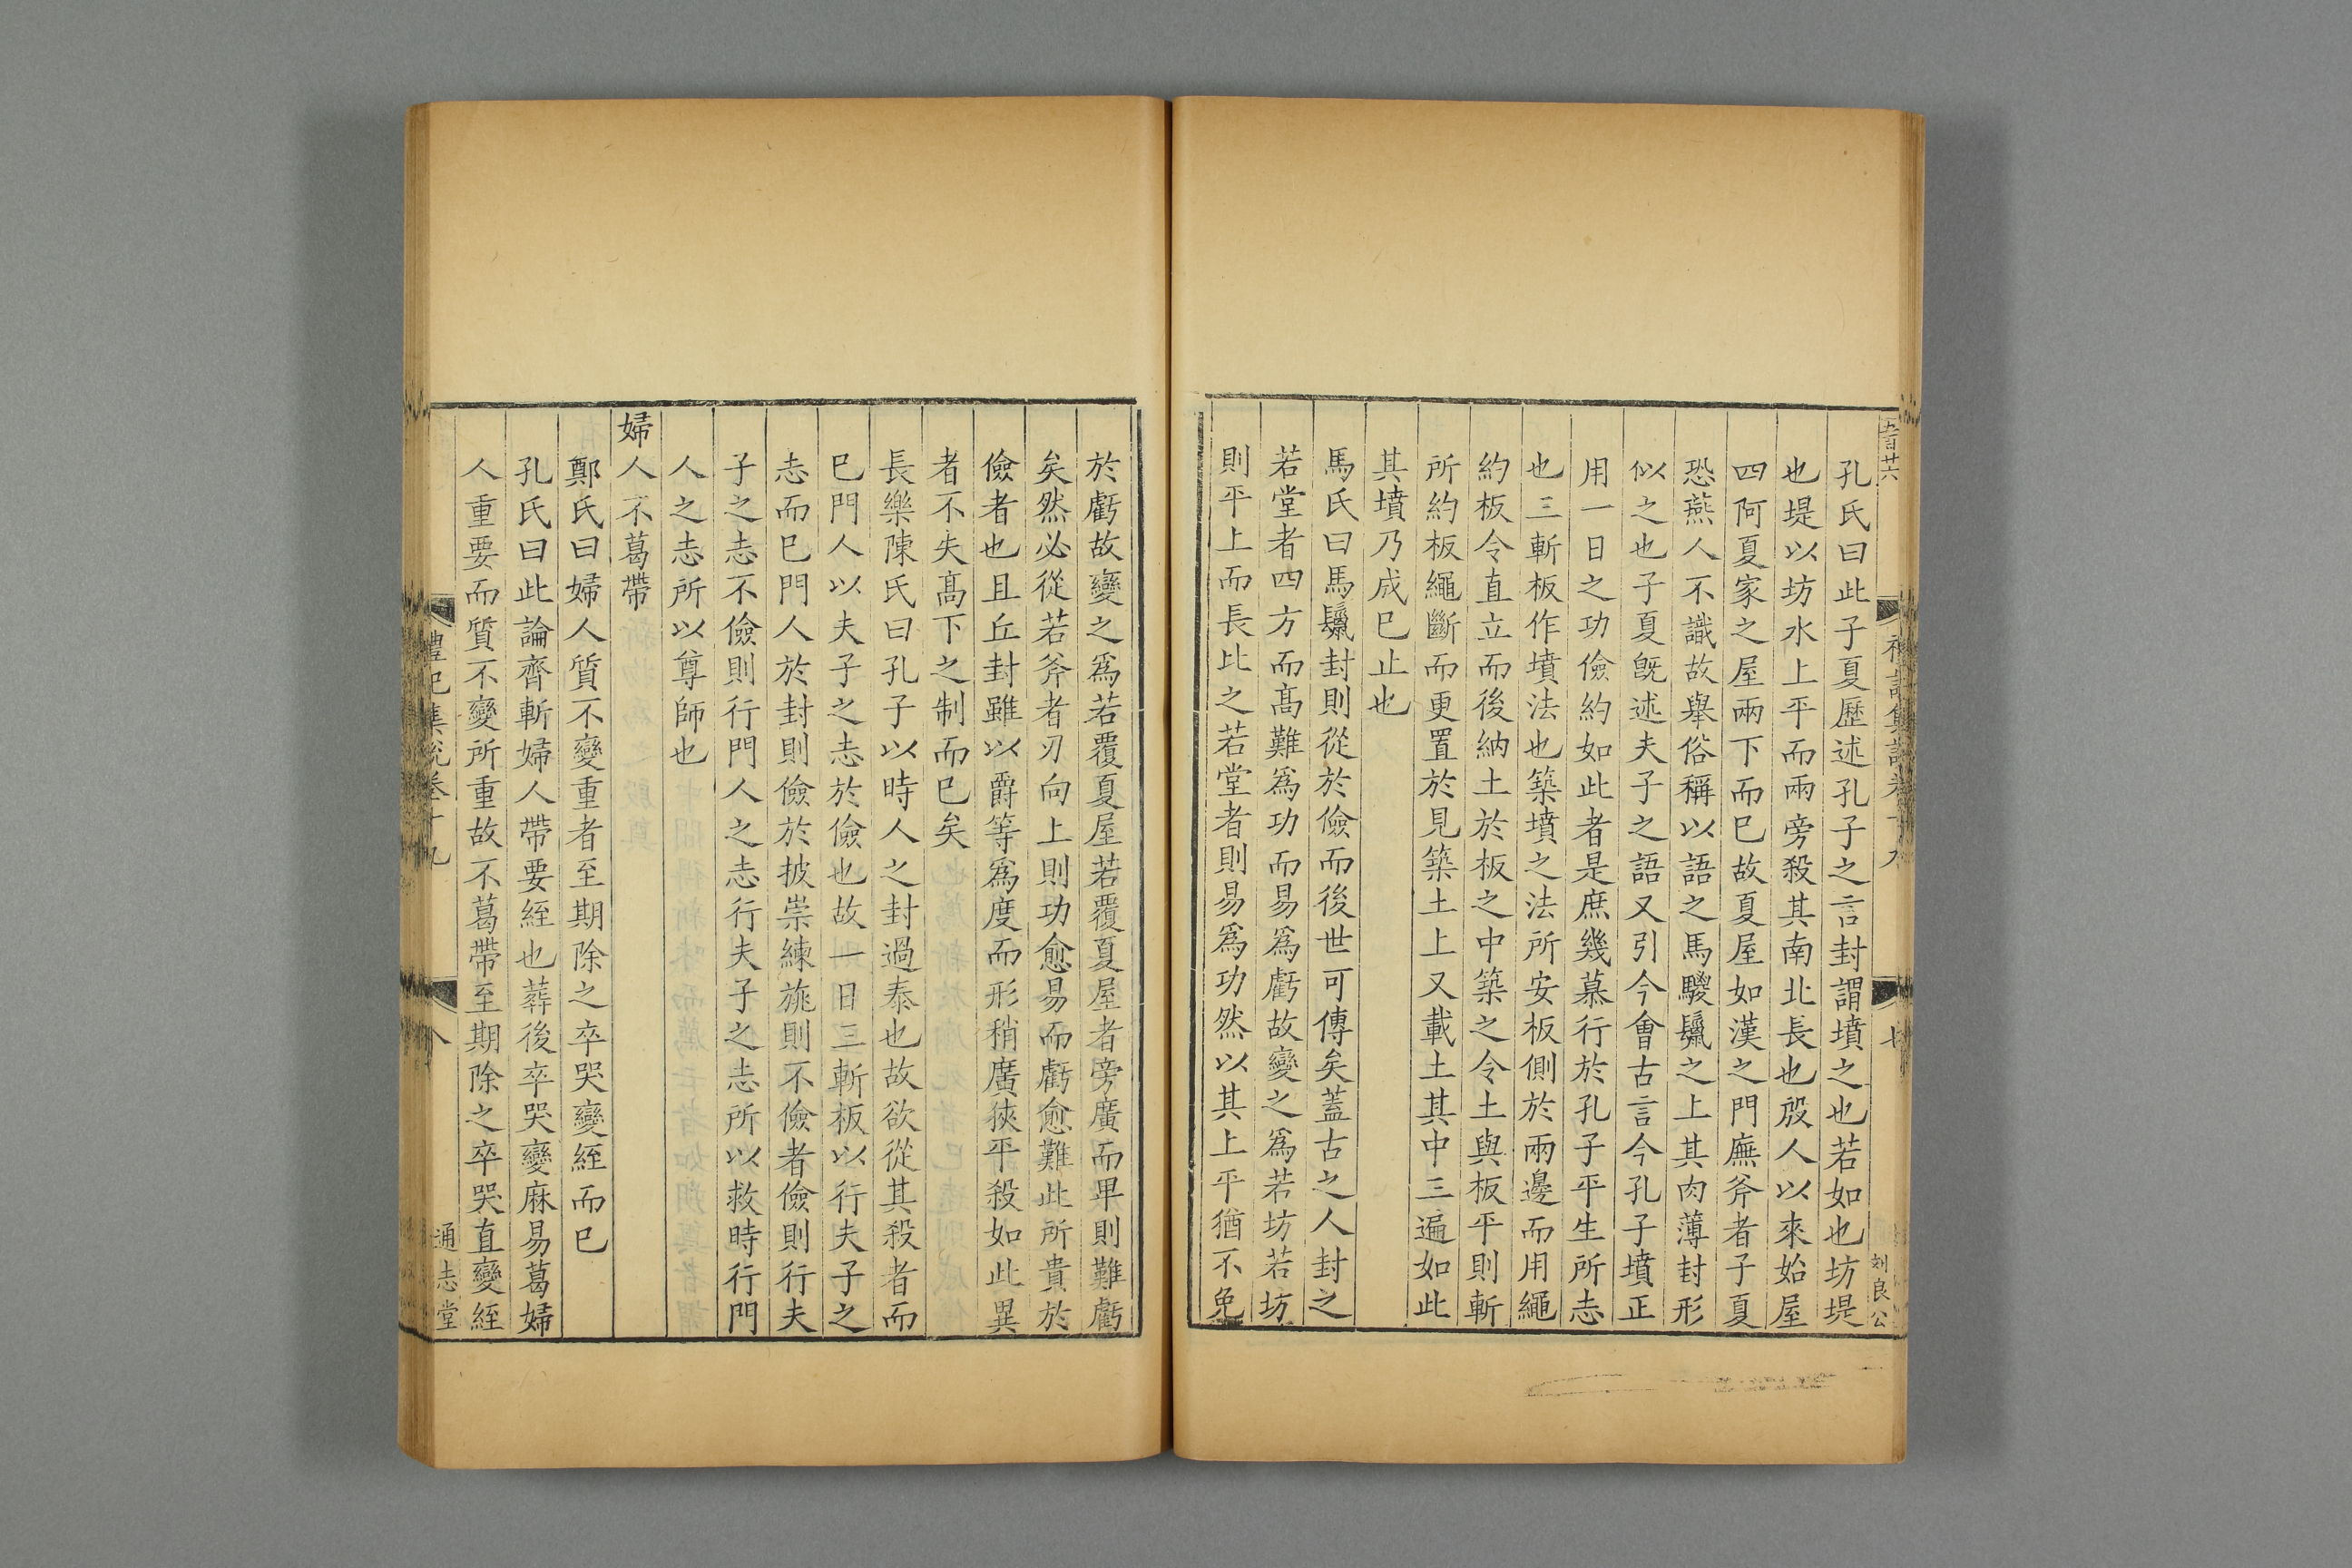 孔氏曰此子夏歷述孔子之言封謂墳之也若如也坊堤
也堤以坊水上平而兩旁殺其南北長也殷人以來始屋
四阿夏家之屋兩下而巳故夏屋如漢之門廡斧者子夏
恐燕人不識故舉俗稱以語之馬騣鬛之上其肉薄封形
似之也子夏旣述夫子之語又引今會古言今孔子墳正
用一日之功儉約如此者是庶幾慕行於孔子平生所志
也三斬板作墳法也築墳之法所安板側於兩邊而用繩
約板令直立而後納土於板之中築之令土與板平則斬
所約板繩斷而更置於見築土上又載土其中三遍如此
其墳乃成巳止也
馬氏曰馬鬛封則從於儉而後世可傳矣蓋古之人封之
若堂者四方而髙難爲功而易爲虧故變之爲若坊若坊
則平上而長比之若堂者則易爲功然以其上平猶不免
劉良公
於虧故變之爲若覆夏屋若覆夏屋者旁廣而𤰞則難虧
矣然必從若斧者刃向上則功愈易而虧愈難此所貴於
儉者也且丘封雖以爵等爲度而形稍廣狹平殺如此異
者不失髙下之制而巳矣
長樂陳氏曰孔子以時人之封過泰也故欲從其殺者而
巳門人以夫子之志於儉也故一日三斬板以行夫子之
志而巳門人於封則儉於披崇練旐則不儉者儉則行夫
子之志不儉則行門人之志行夫子之志所以救時行門
人之志所以尊師也
婦人不葛帶
鄭氏曰婦人質不變重者至期除之卒哭變絰而巳
孔氏曰此論齊斬婦人帶要絰也葬後卒哭變麻易葛婦
人重要而質不變所重故不葛帶至期除之卒哭直變絰
禮記集說卷十九 八 通志堂